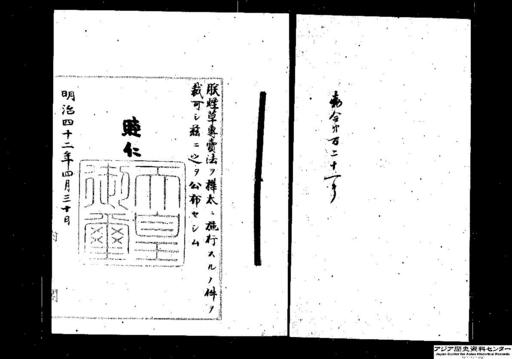 勅令第百二十一号
朕煙草専賣法ヲ樺太ニ施行スルノ件ヲ
裁可シ茲ニ之ヲ公布セシム
睦仁
天皇御璽
明治四十二年四月三十日
内閣
アジア歴史資料センター
Japan Center for Asian Historical Records